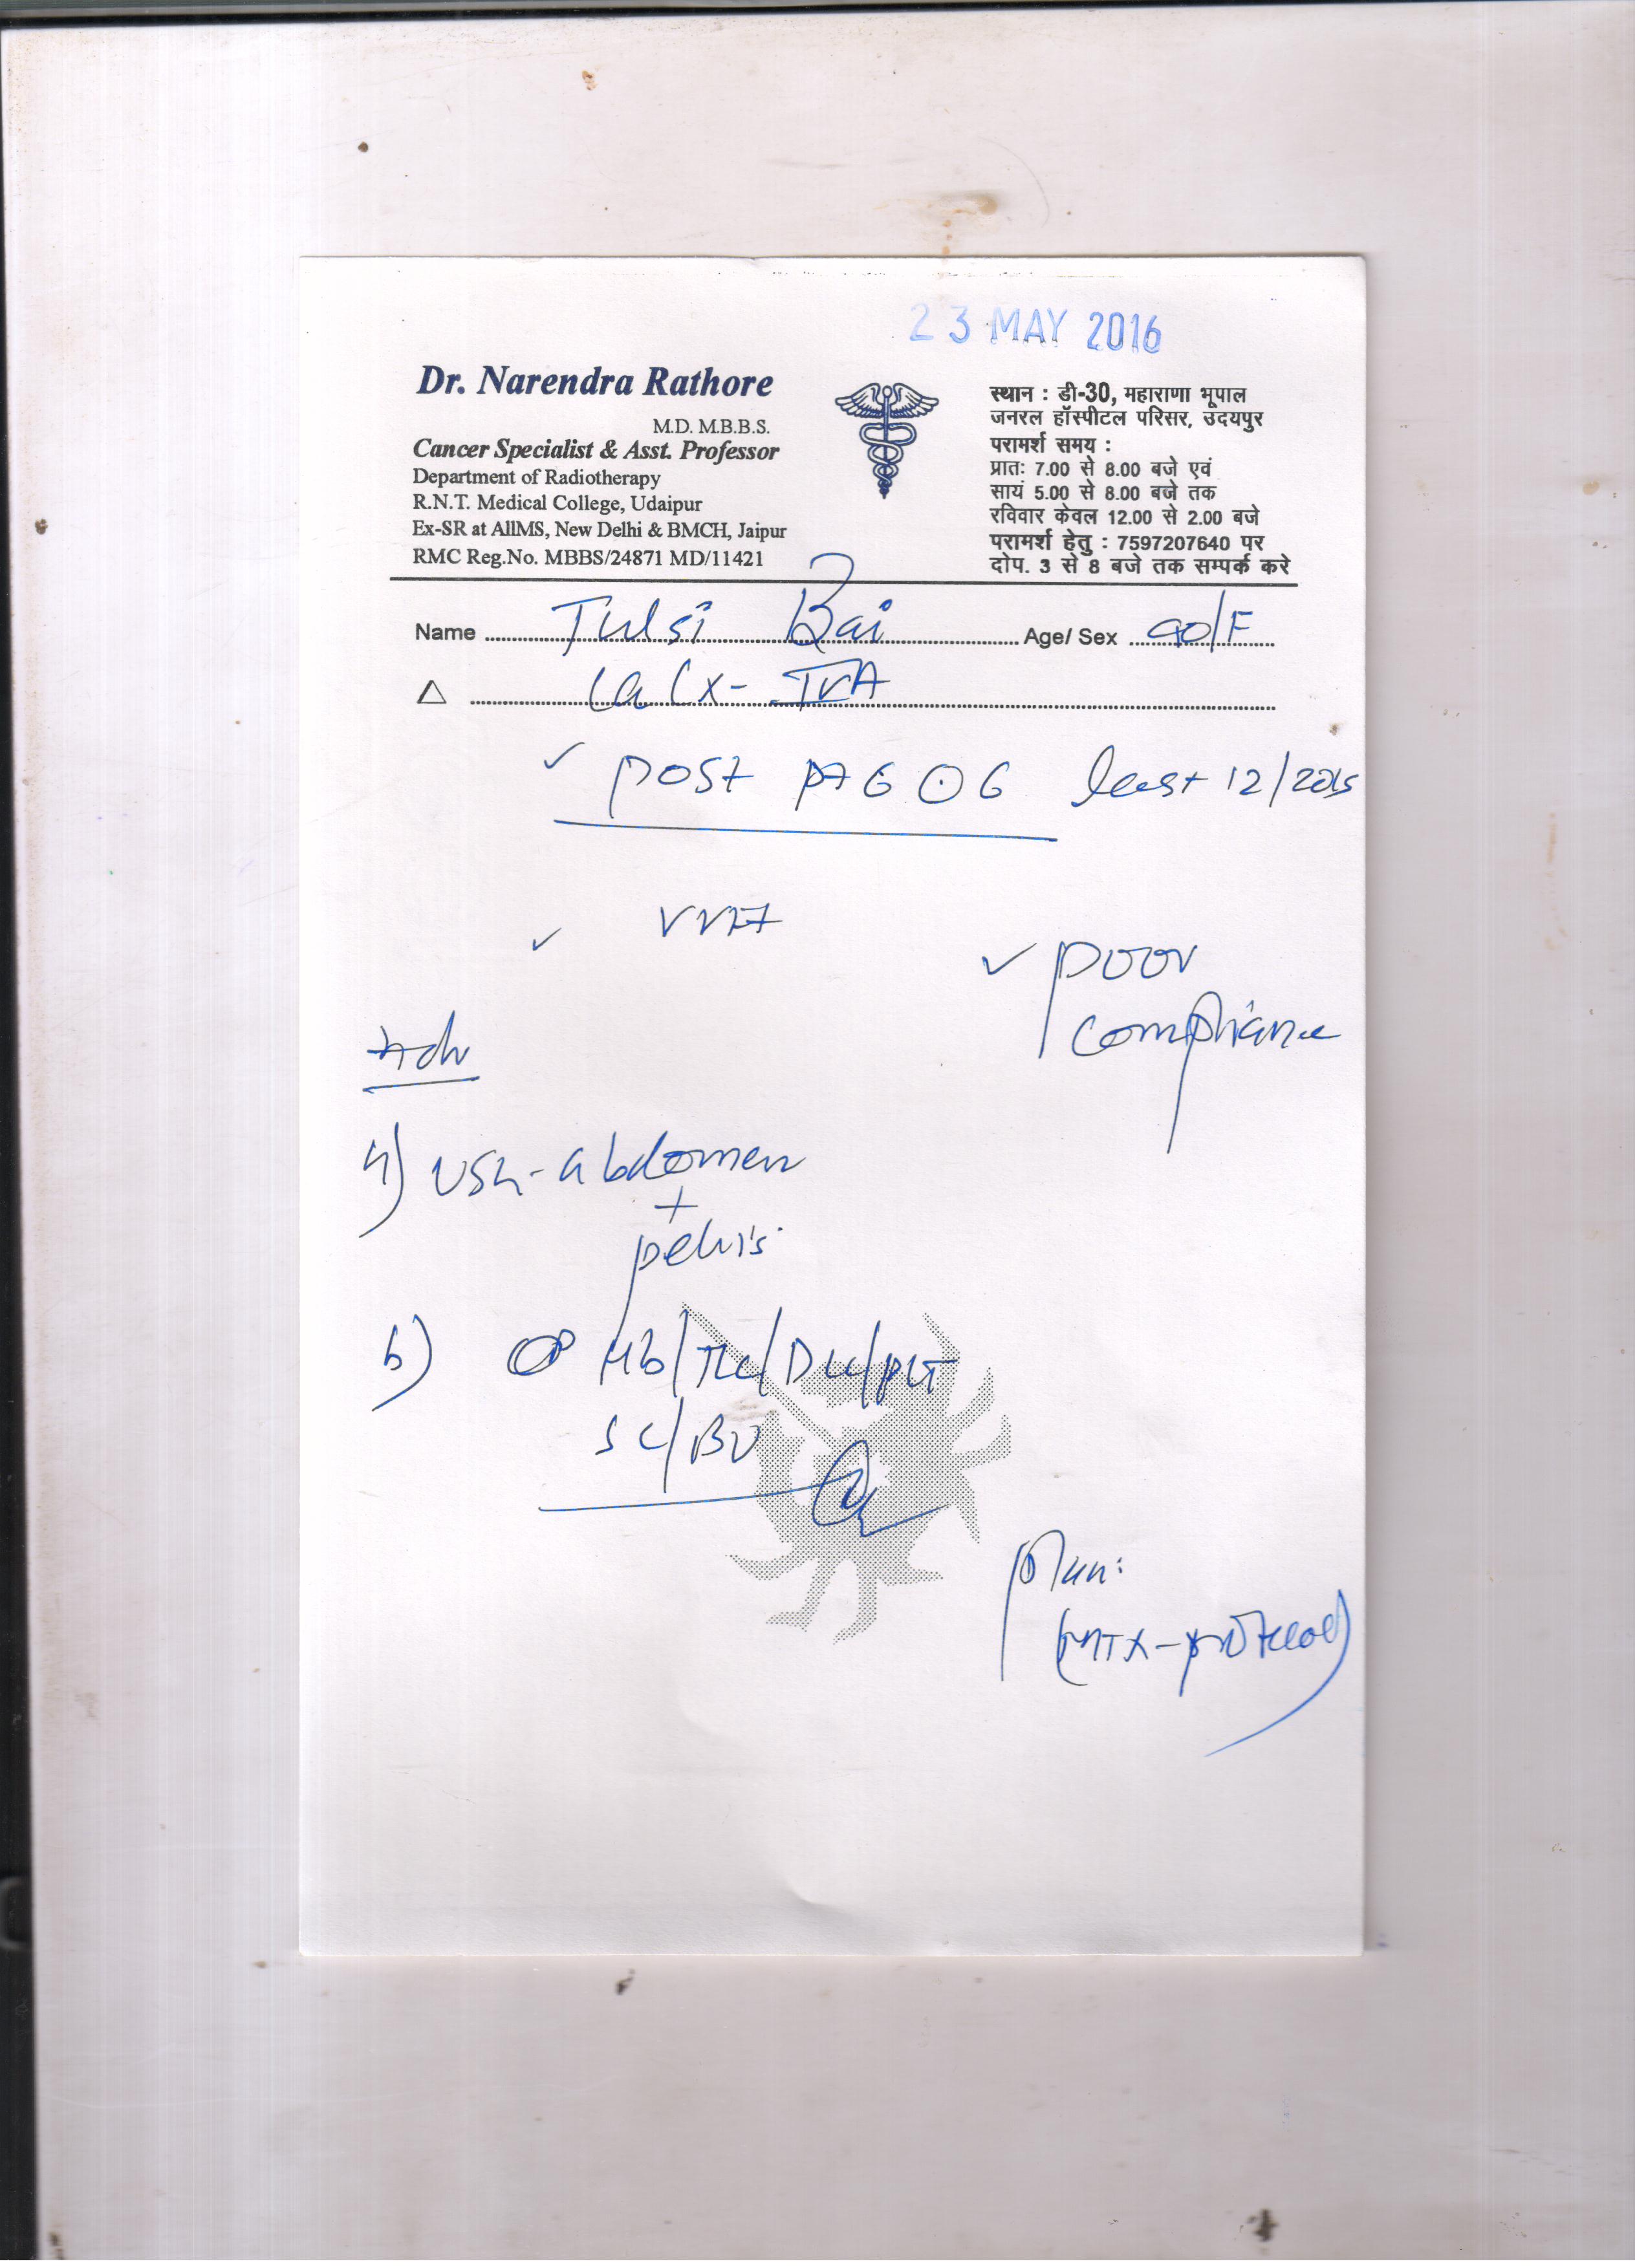 23 MAY 2016
Dr. Narendra Rathore
M.D. M.B.B.S.
Cancer Specialist & Asst. Professor
Department of Radiotherapy
R.N.T. Medical College, Udaipur
Ex-SR at AIIMS, New Delhi & BMCH, Jaipur
RMC Reg.No. MBBS/24871 MD/11421
स्थान : डी-30, महाराणा भूपाल
जनरल हॉस्पीटल परिसर, उदयपुर
परामर्श समय :
प्रातः 7.00 से 8.00 बजे एवं
सायं 5.00 से 8.00 बजे तक
रविवार केवल 12.00 से 2.00 बजे
परामर्श हेतु : 7597207640 पर
दोप. 3 से 8 बजे तक सम्पर्क करे
Name Tulsi Bai Age/ Sex /F
△ Ca Cx - IVA
✓ post last 12/2015
✓ VVF
✓ poor
compliance
Adv
a) USG - abdomen
+
pelvis
b) Hb/TLC/DLC/PLT
SC/BU
plan:
(MTX - protocol)